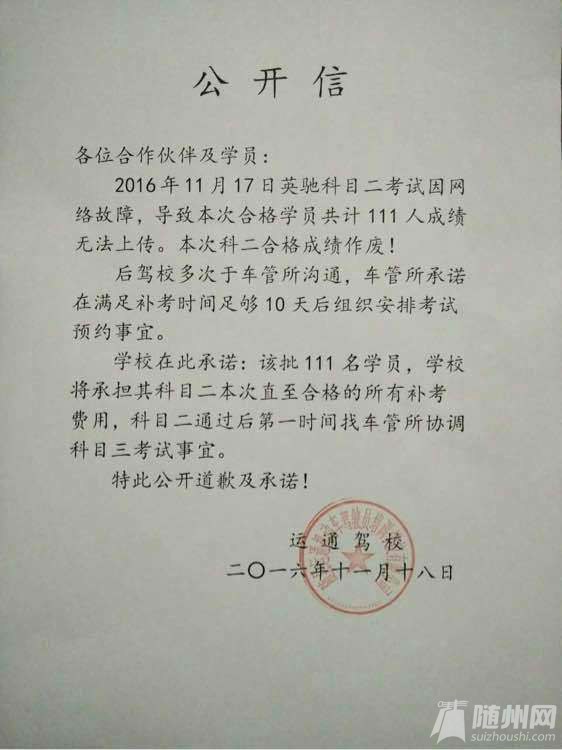 公开信
各位合作伙伴及学员：
2016年11月17日英驰科目二考试因网
络故障，导致本次合格学员共计111人成绩
无法上传。本次科二合格成绩作废！
后驾校多次于车管所沟通，车管所承诺
在满足补考时间足够10天后组织安排考试
预约事宜。
学校在此承诺：该批111名学员，学校
将承担其科目二本次直至合格的所有补考
费用，科目二通过后第一时间找车管所协调
科目三考试事宜。
特此公开道歉及承诺！
运通驾校
二〇一六年十一月十八日
随州网
suizhoushi.com